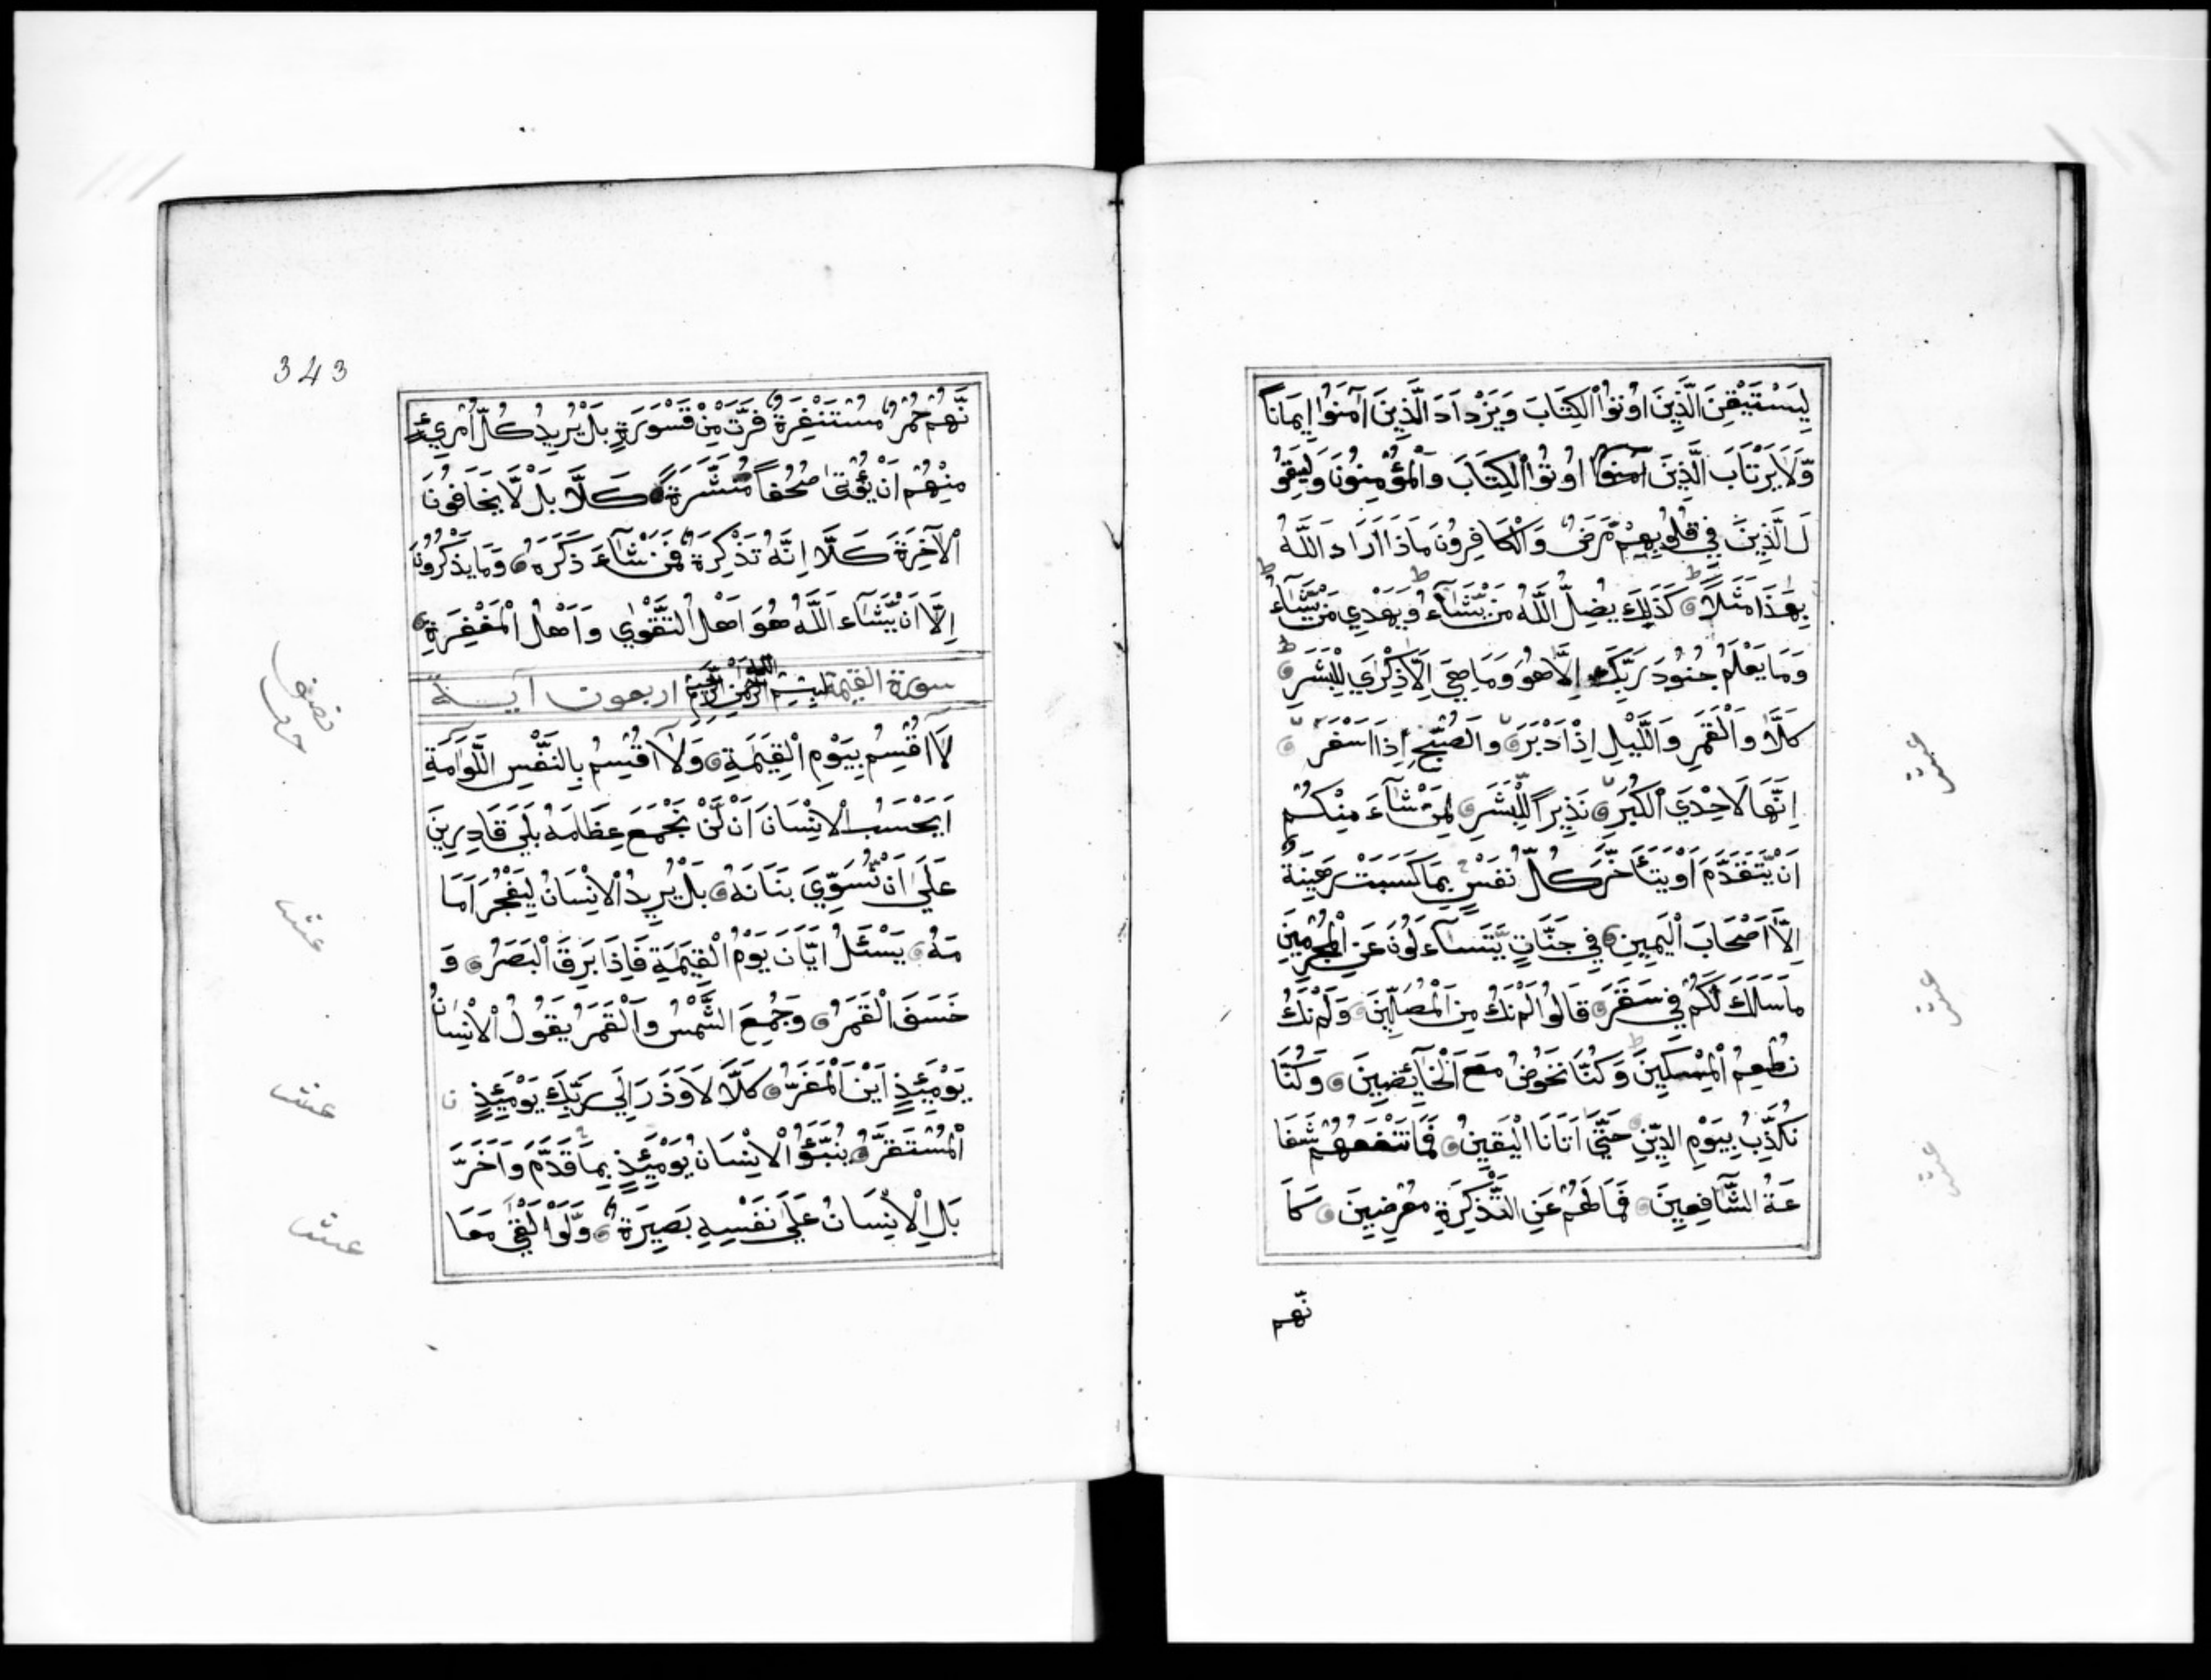 لِيَسْتَيْقِنَ الَّذِينَ اُوتُوا الْكِتَابَ وَيَزْدَادَ الَّذِينَ آمَنُوا اِيمَاناً
وَّلَا يَرْتَابَ الَّذِينَ آمنوا اُوتُوا الْكِتَابَ وَالْمُؤْمِنُونَ وَلِيَقُو
لَ الَّذِينَ فِي قُلُوبِهِمْ مَّرَضٌ وَالْكَافِرُونَ مَاذَا اَرَادَ اللَّهُ
بِهَذَا مَثَلاً كَذَلِكَ يُضِلُّ اللَّهُ مَنْ يَّشَآءُ وَيَهْدِي مَنْ يَّشَآءُ
وَمَا يَعْلَمُ جُنُودَ رَبِّكَ اِلَّا هُوَ وَمَا هِيَ اِلَّا ذِكْرَي لِلْبَشَرِ
كَلَّا وَالْقَمَرِ وَاللَّيْلِ اِذْ اَدْبَرَ وَالصُّبْحِ اِذَا اَسْفَرَ
اِنَّهَا لَاحْدَي الْكُبَرِ نَذِيراً لِّلْبَشَرِ لِمَنْ شَآءَ مِنْكُمْ
اَنْ يَّتَقَدَّمَ اَوْ يَتَأَخَّرَ كُلُّ نَفْسٍ بِمَا كَسَبَتْ رَهِينَةٌ
اِلَّا اَصْحَابَ الْيَمِينِ فِي جَنَّاتٍ يَّتَسَآءَلُونَ عَنِ الْمُجْرِمِينَ
مَاسَلَكَكُمْ فِي سَقَرَ قَالُوا لَمْ نَكُ مِنَ الْمُصَلِّينَ وَلَمْ نَكُ
نُطْعِمُ الْمِسْكِينَ وَكُنَّا نَخُوضُ مَعَ الْخَآئِضِينَ وَكُنَّا
نُكَذِّبُ بِيَوْمِ الدِّينِ حَتَّي اَتَانَا الْيَقِينُ فَمَا تَنْفَعُهُمْ شَفَا
عَةُ الشَّافِعِينَ فَمَا لَهُمْ عَنِ التَّذْكِرَةِ مُعْرِضِينَ كَاَ
نّهم
عشر
عشر
عشر
343
نَّهُمْ حُمُرٌ مُسْتَنْفِرَةٌ فَرَّتْ مِنْ قَسْوَرَةٍ بَلْ يُرِيدُ كُلُّ امْرِيءٍ
مِنْهُمْ اَنْ يُؤْتَي صُحُفاً مُنَشَّرَةً كَلَّا بَلْ لَّا يَخَافُونَ
الْآخِرَةَ كَلَّا اِنَّهُ تَذْكِرَةٌ فَمَنْ شَآءَ ذَكَرَهُ وَمَا يَذْكُرُونَ
اِلَّا اَنْ يَّشَآءَ اللَّهُ هُوَ اَهْلُ التَّقْوَي وَاَهْلُ الْمَغْفِرَةِ
سورة القيمة بِسْمِ اللَّهِ الرَّحْمَنِ الرَّحِيمِ اربعون آيـة
لَآ اُقْسِمُ بِيَوْمِ الْقِيَمَةِ وَلَآ اُقْسِمُ بِالنَّفْسِ اللَّوَّامَةِ
اَيَحْسَبُ الْاِنْسَانُ اَنْ لَّنْ نَجْمَعَ عِظَامَهُ بَلَي قَادِرِينَ
عَلَي اَنْ نُّسَوِّيَ بَنَانَهُ بَلْ يُرِيدُ الْاِنْسَانُ لِيَفْجُرَ اَمَا
مَهُ يَسْئَلُ اَيَّانَ يَوْمُ الْقِيَمَةِ فَاِذَا بَرِقَ الْبَصَرُ وَ
خَسَفَ الْقَمَرُ وَجُمِعَ الشَّمْسُ وَالْقَمَرُ يَقُولُ الْاِنْسَانُ
يَوْمَئِذٍ اَيْنَ الْمَفَرُّ كَلَّا لَا وَزَرَ اِلَي رَبِّكَ يَوْمَئِذٍ
الْمُسْتَقَرُّ يُنَبَّؤُ الْاِنْسَانُ يَوْمَئِذٍ بِمَا قَدَّمَ وَاَخَّرَ
بَلِ الْاِنْسَانُ عَلَي نَفْسِهِ بَصِيرَةٌ وَّلَوْ اَلْقَي مَعَا
عشر
عشر
عشر